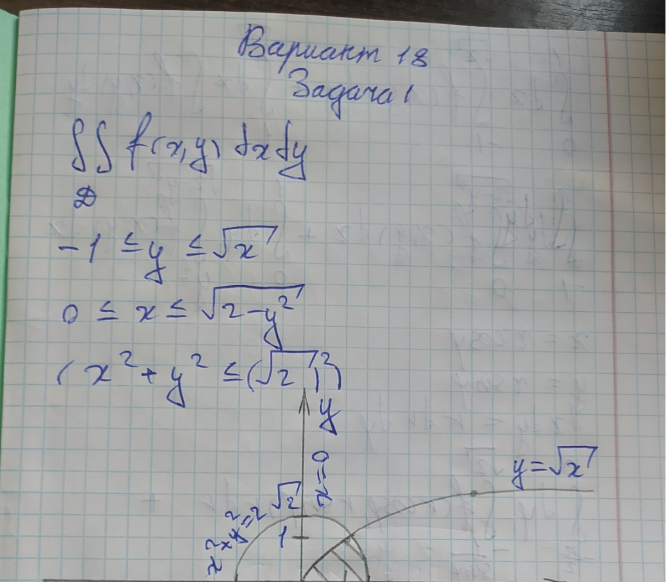 Вариант 18
Задача 1
∬ f(x,y) dxdy
D
-1 ≤ y ≤ √x
0 ≤ x ≤ √(2-y²)
( x² + y² ≤ (√2)²)
y
x=0
y=√x
√2
x²+y²=2
1